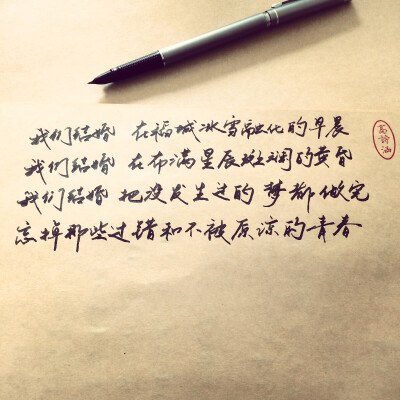 我们结婚 在稻城冰雪融化的早晨
我们结婚 在布满星辰斑斓的黄昏
我们结婚 把没发生过的梦都做完
忘掉那些过错和不被原谅的青春